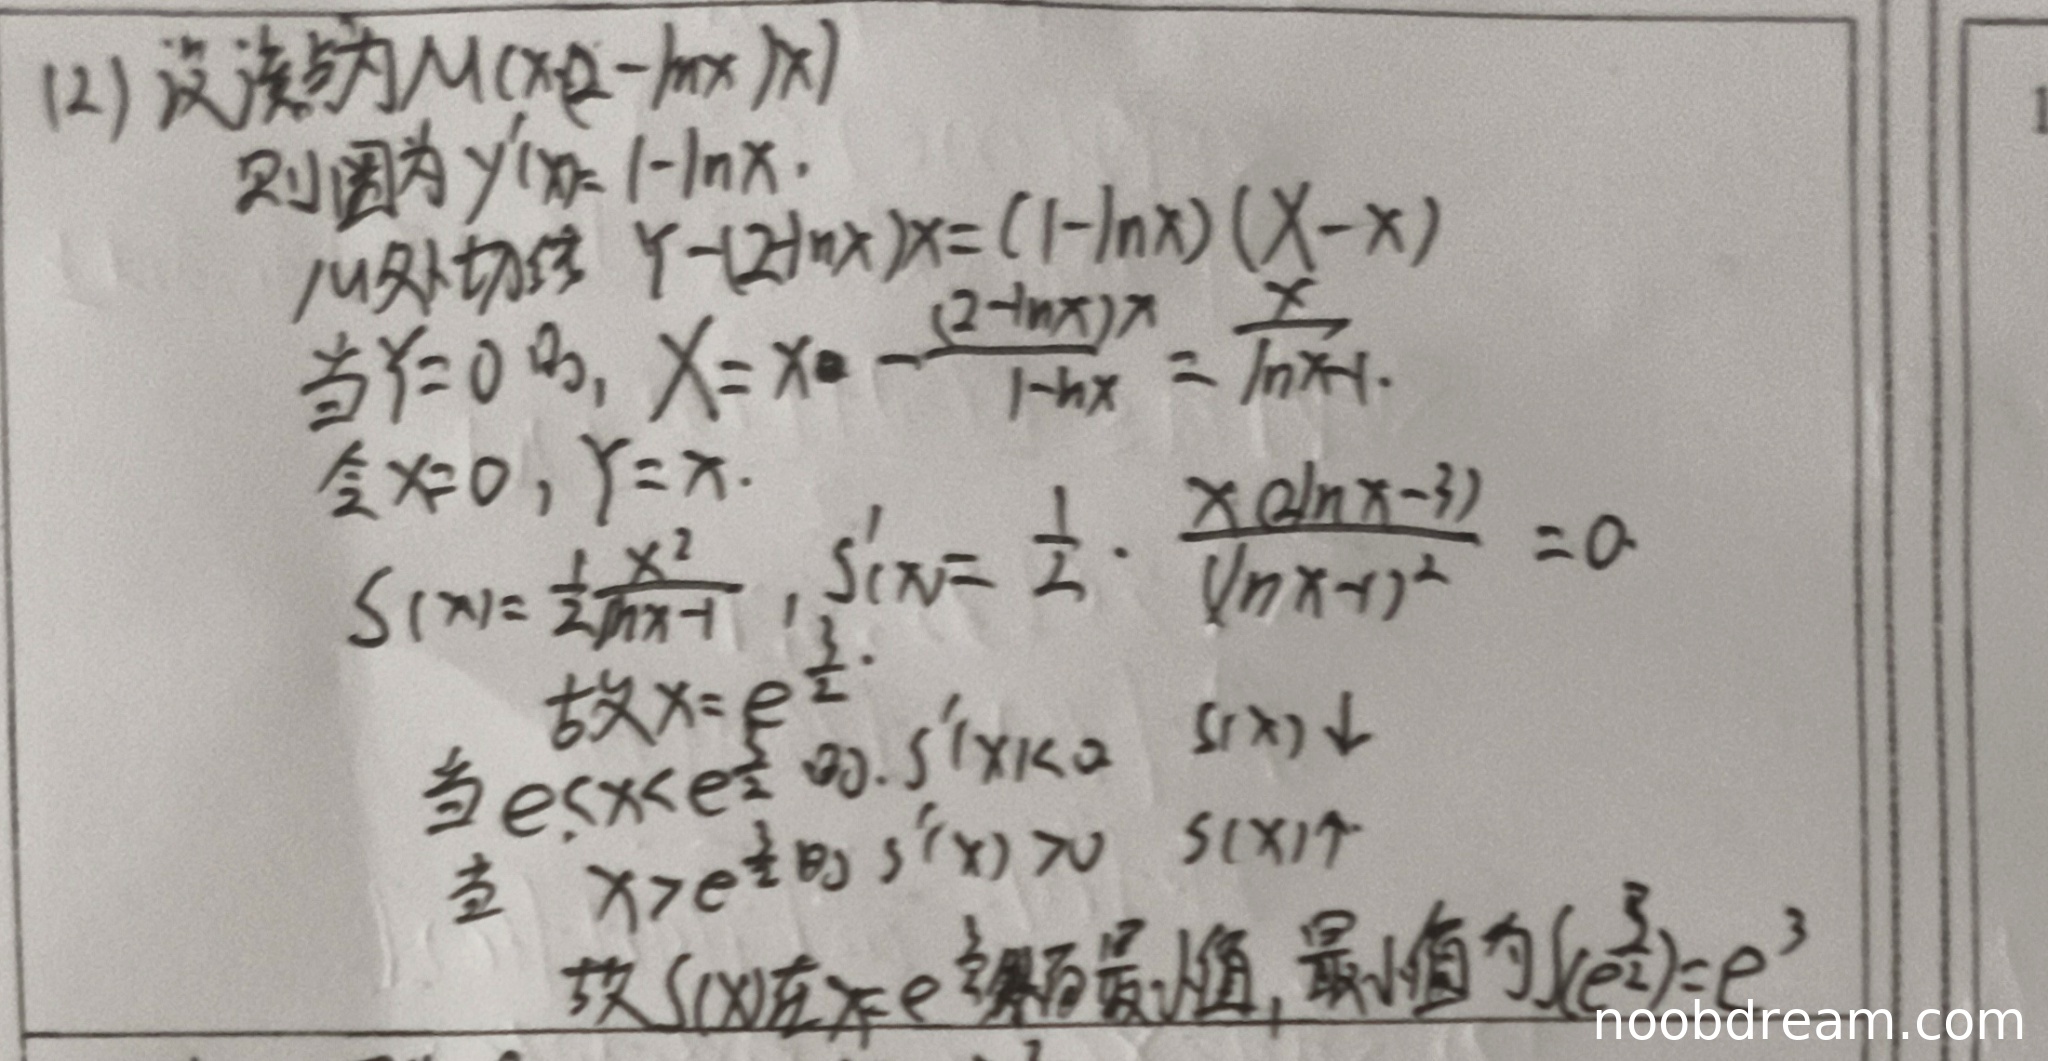 (2) 设该点为M(x,(2-lnx)x)
则因为 y'(x)=1-lnx.
M处切线 Y-(2-lnx)x=(1-lnx)(X-x)
当Y=0时, X=x-\frac{(2-lnx)x}{1-lnx}=\frac{x}{lnx-1}.
令x=0, Y=x.
S(x)=\frac{1}{2}\frac{x^2}{lnx-1}, S'(x)=\frac{1}{2}·\frac{x(2lnx-3)}{(lnx-1)^2}=0
故x=e^{\frac{3}{2}}.
当e<x<e^{\frac{3}{2}}时. S'(x)<0 S(x)↓
当 x>e^{\frac{3}{2}}时 S'(x)>0 S(x)↑
故S(x)在x=e^{\frac{3}{2}}有最小值, 最小值为S(e^{\frac{3}{2}})=e^3
noobdream.com